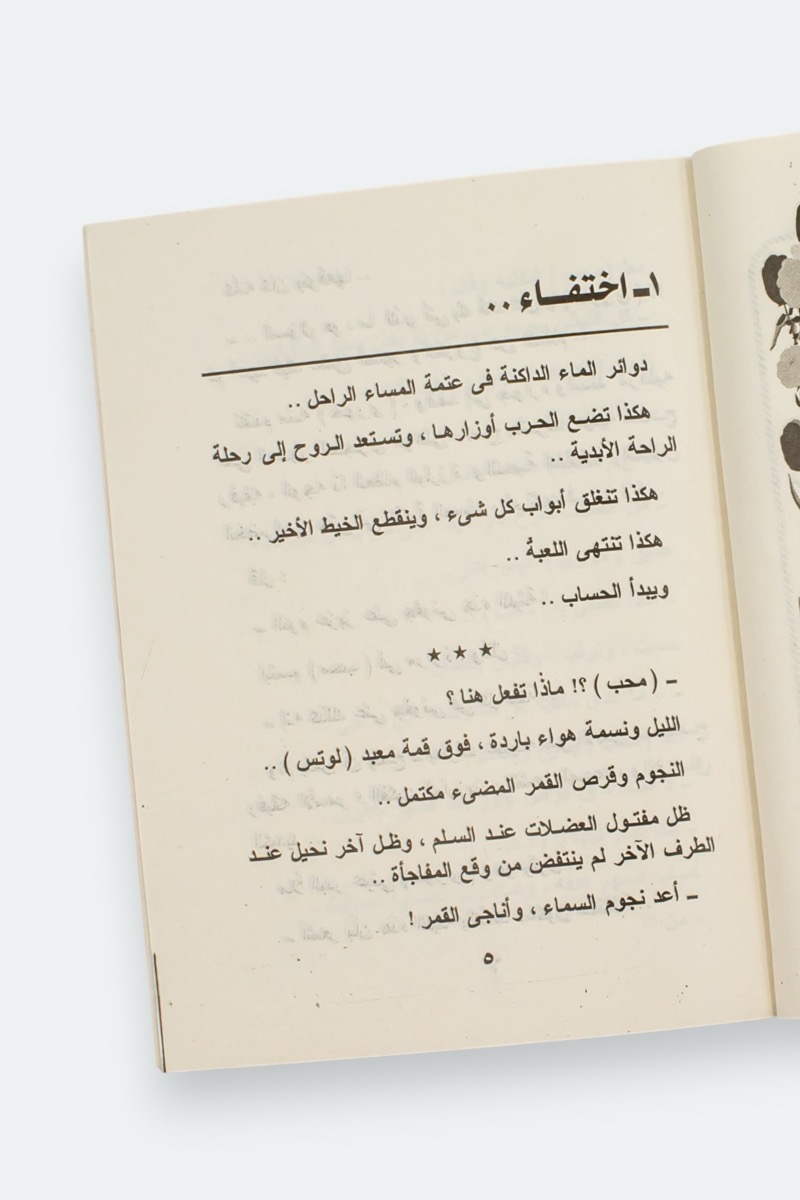 ١ـ اختفـــاء ..
دوائر الماء الداكنة فى عتمة المساء الراحل ..
هكذا تضـع الحـرب أوزارهـا ، وتسـتعد الـروح إلى رحلة
الراحة الأبدية ..
هكذا تنغلق أبواب كل شىء ، وينقطع الخيط الأخير ..
هكذا تنتهى اللعبة ..
ويبدأ الحساب ..
★ ★ ★
ـ ( محب ) ؟! ماذا تفعل هنا ؟
الليل ونسمة هواء باردة ، فوق قمة معبد ( لوتس ) ..
النجوم وقرص القمر المضىء مكتمل ..
ظل مفتـول العضـلات عنـد السـلم ، وظـل آخر نحيل عنـد
الطرف الآخر لم ينتفض من وقع المفاجأة ..
ـ أعد نجوم السماء ، وأناجى القمر !
٥